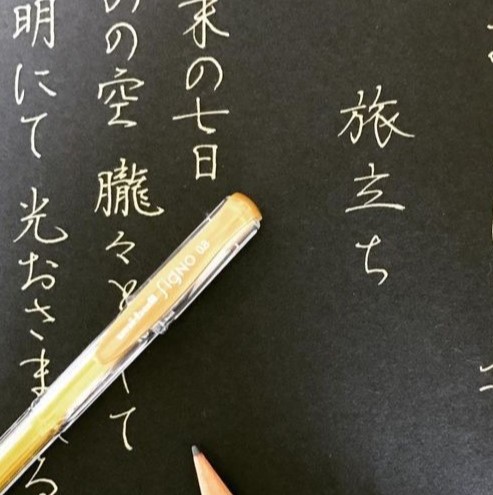 旅立ち
末の七日
の空 朧々と て
明にて 光おさま る
uni-ball Signo 0.8